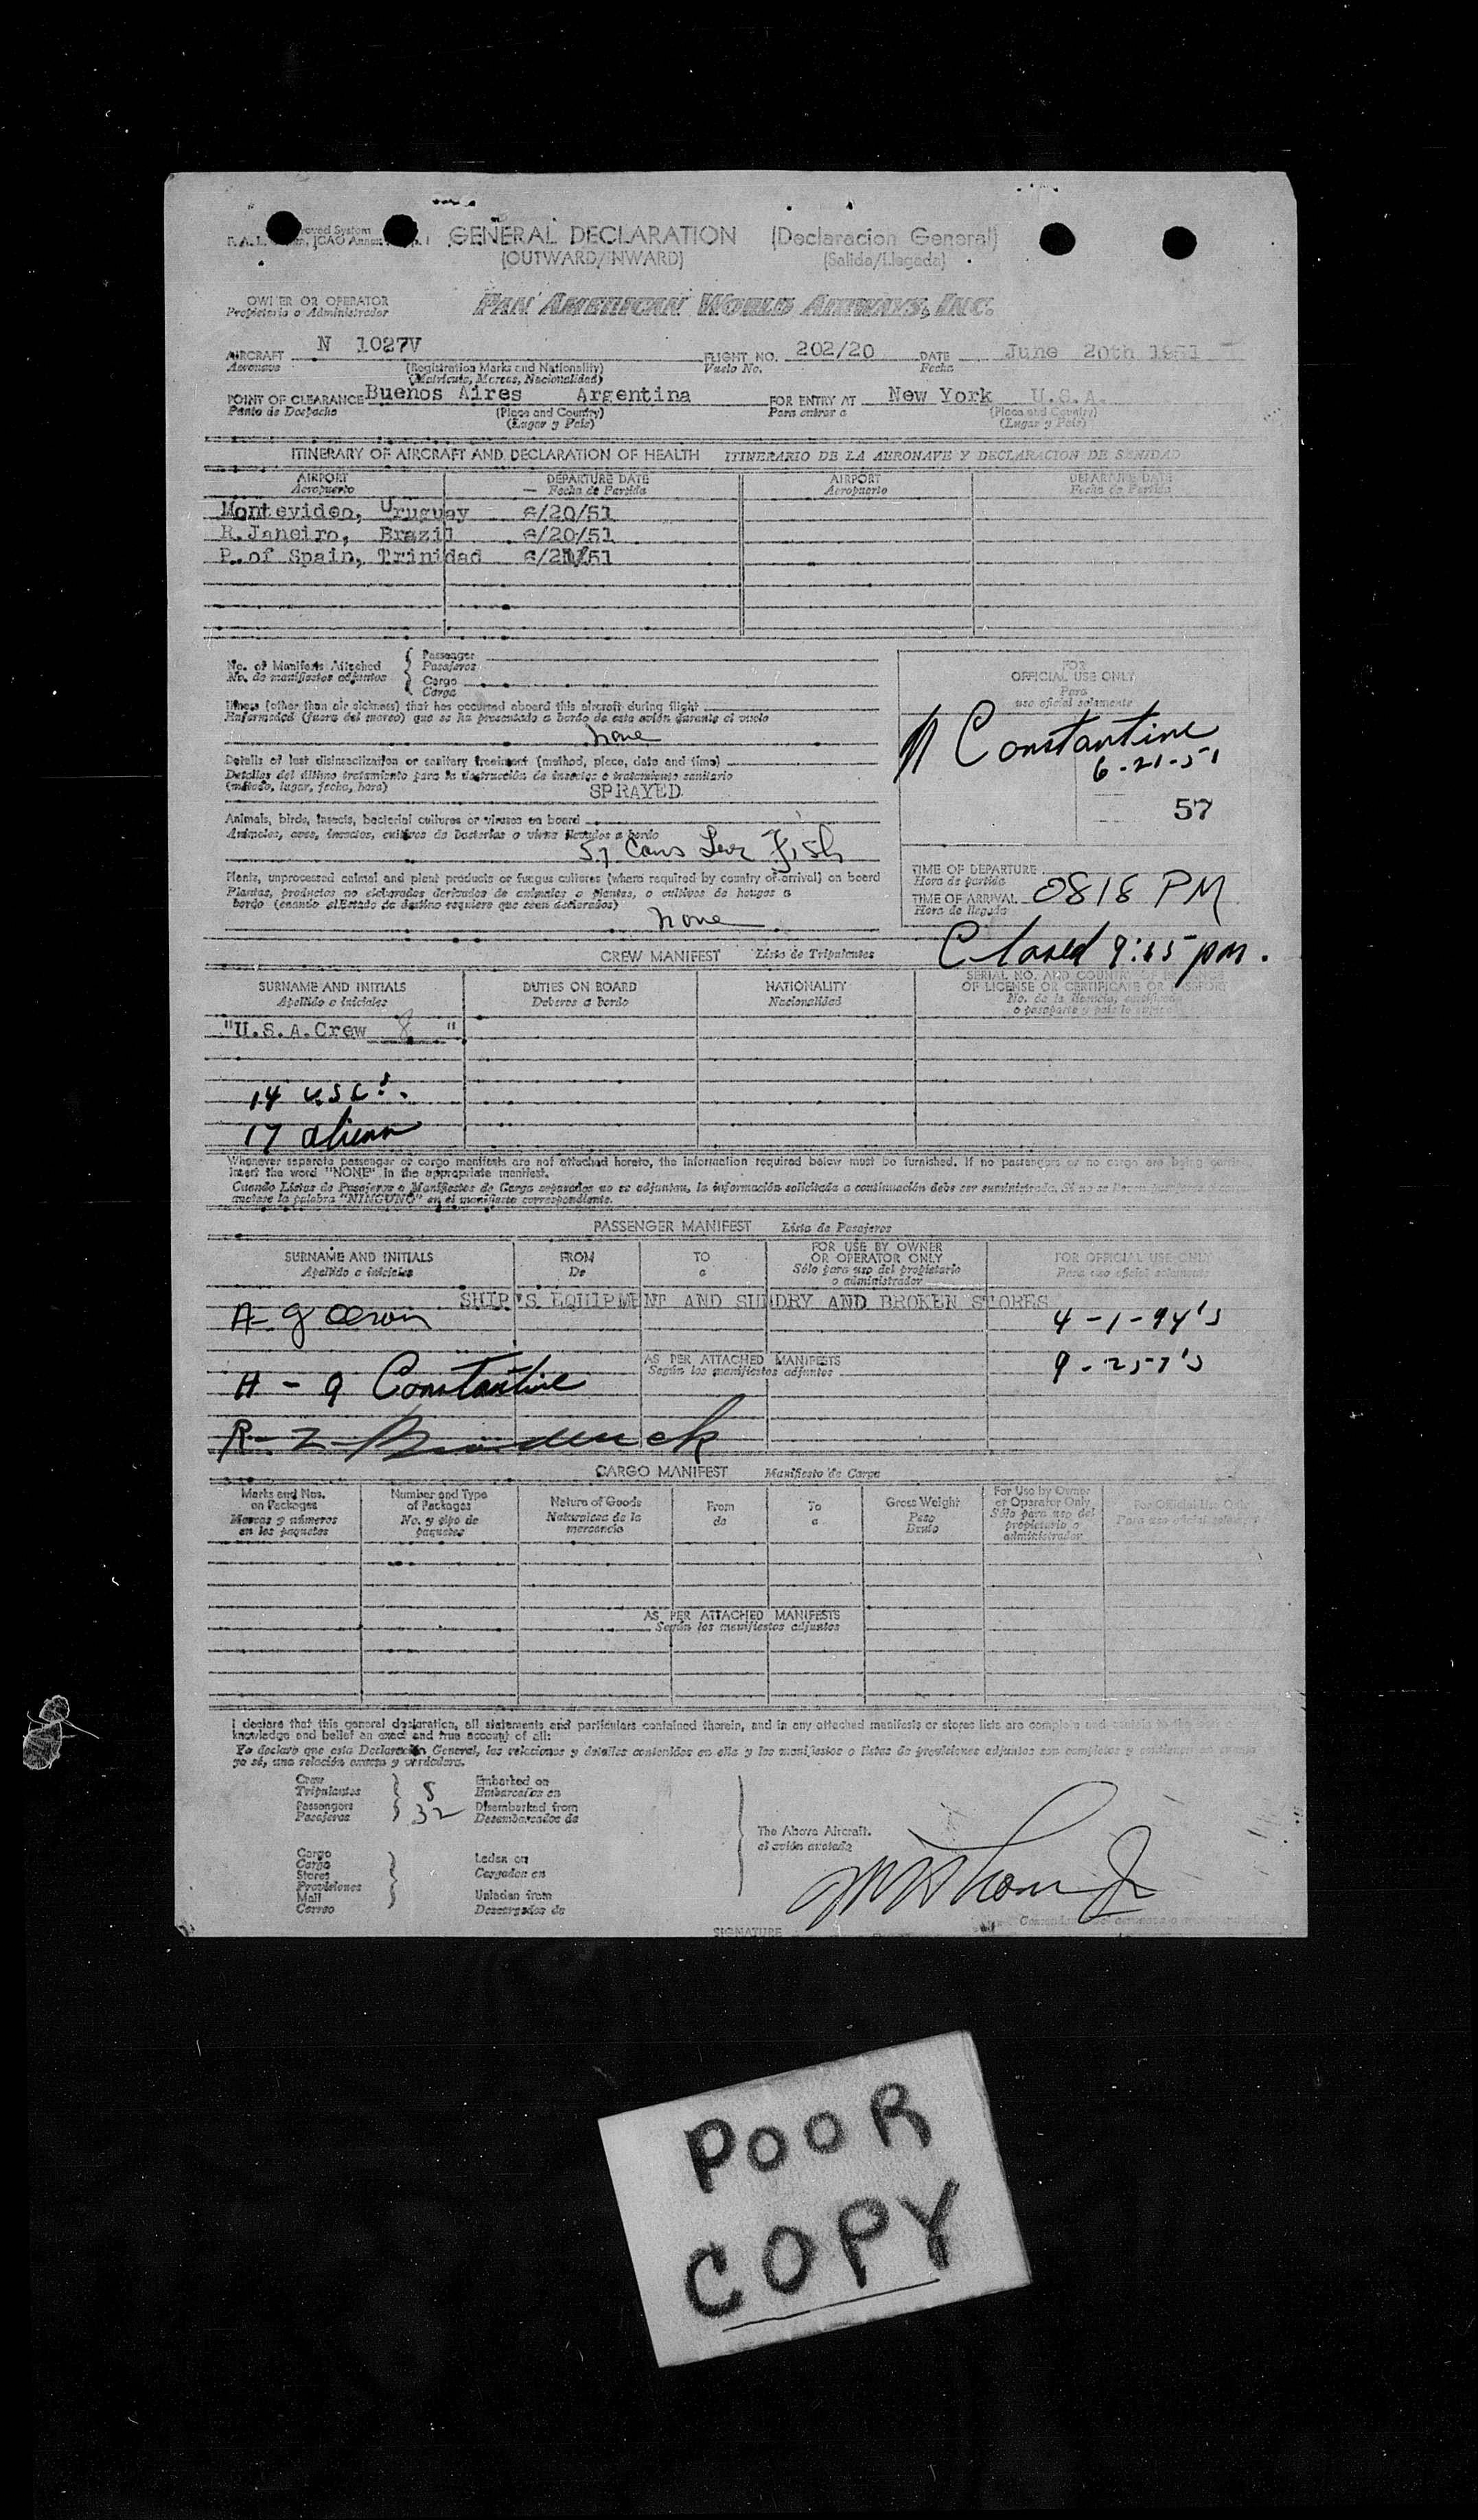 GENERAL DECLARATION (Declaracion General)
(OUTWARD/INWARD) (Salida/Llegada)
OWNER OR OPERATOR
Propietario o Administrador
PAN AMERICAN WORLD AIRWAYS, INC.
AIRCRAFT N 1027V FLIGHT NO. 202/20 DATE June 20th 1951
Aeronave (Registration Marks and Nationality) Vuelo No. Fecha
(Matricula, Marcas, Nacionalidad)
POINT OF CLEARANCE Buenos Aires Argentina FOR ENTRY AT New York U.S.A.
Punto de Despacho (Place and Country) Para entrar a (Place and Country)
(Lugar y Pais) (Lugar y Pais)
ITINERARY OF AIRCRAFT AND DECLARATION OF HEALTH ITINERARIO DE LA AERONAVE Y DECLARACION DE SANIDAD
AIRPORT DEPARTURE DATE AIRPORT DEPARTURE DATE
Aeropuerto Fecha de Partida Aeropuerto Fecha de Partida
Montevideo, Uruguay 6/20/51
R.Janeiro, Brazil 6/20/51
P. of Spain, Trinidad 6/21/51
No. of Manifests Attached Passenger
No. de manifiestos adjuntos Pasajeros
Cargo
Carga
FOR
OFFICIAL USE ONLY
Para
uso oficial solamente
Illness (other than air sickness) that has occurred aboard this aircraft during flight
Enfermedad (fuera del mareo) que se ha presentado a bordo de este avión durante el vuelo
None
Constantine
6-21-51
57
Details of last disinsectization or sanitary treatment (method, place, date and time)
Detalles del último tratamiento para la destrucción de insectos o tratamiento sanitario
(método, lugar, fecha, hora) SPRAYED
Animals, birds, insects, bacterial cultures or viruses on board
Animales, aves, insectos, cultivos de bacterias o virus llevados a bordo
57 Cans Fish
Plants, unprocessed animal and plant products or fungus cultures (where required by country of arrival) on board
Plantas, productos no elaborados derivados de animales o plantas, o cultivos de hongos a
bordo (cuando el Estado de destino requiere que sean declarados)
None
TIME OF DEPARTURE
Hora de partida
TIME OF ARRIVAL 0818 PM
Hora de llegada
Closed pm.
CREW MANIFEST Lista de Tripulantes
SURNAME AND INITIALS DUTIES ON BOARD NATIONALITY SERIAL NO. AND COUNTRY OF ISSUANCE
OF LICENSE OR CERTIFICATE OR PASSPORT
Apellido e iniciales Deberes a bordo Nacionalidad No. de la licencia, certificado
o pasaporte y pais
"U.S.A.Crew 8 "
14 USC's.
17 aliens
Whenever separate passenger or cargo manifests are not attached hereto, the information required below must be furnished. If no passengers or no cargo are being
insert the word "NONE" in the appropriate manifest.
Cuando Listas de Pasajeros o Manifiestos de Carga separados no se adjuntan, la información solicitada a continuación debe ser suministrada. Si no se
anótese la palabra "NINGUNO" en el manifiesto correspondiente.
PASSENGER MANIFEST Lista de Pasajeros
SURNAME AND INITIALS FROM TO FOR USE BY OWNER OR OPERATOR ONLY FOR OFFICIAL USE ONLY
Apellido e iniciales De a Sólo para uso del propietario o administrador Para uso oficial solamente
SHIP'S EQUIPMENT AND SUNDRY AND BROKEN STORES
4-1-94's
AS PER ATTACHED MANIFESTS
Según los manifiestos adjuntos
9-257's
H - 9 Constantine
CARGO MANIFEST Manifiesto de Carga
Marks and Nos. on Packages Number and Type of Packages Nature of Goods From To Gross Weight For Use by Owner or Operator Only For Official Use Only
Marcas y números en los paquetes No. y tipo de paquetes Naturaleza de la mercancia de a Peso Bruto Sólo para uso del propietario o administrador Para uso oficial
AS PER ATTACHED MANIFESTS
Según los manifiestos adjuntos
I declare that this general declaration, all statements and particulars contained therein, and in any attached manifests or stores lists are complete and
knowledge and belief an exact and true account of all:
Yo declaro que esta Declaración General, las relaciones y detalles contenidos en ella y los manifiestos o listas de provisiones adjuntos son completos y
yo sé, una relación exacta y verdadera.
Crew Embarked on
Tripulantes Embarcados en
Passengers 32 Disembarked from
Pasajeros Desembarcados de
The Above Aircraft.
el avión anotado
Cargo Laden on
Carga
Stores Cargados en
Provisiones
Mail Unladen from
Correo Descargados de
SIGNATURE
POOR
COPY